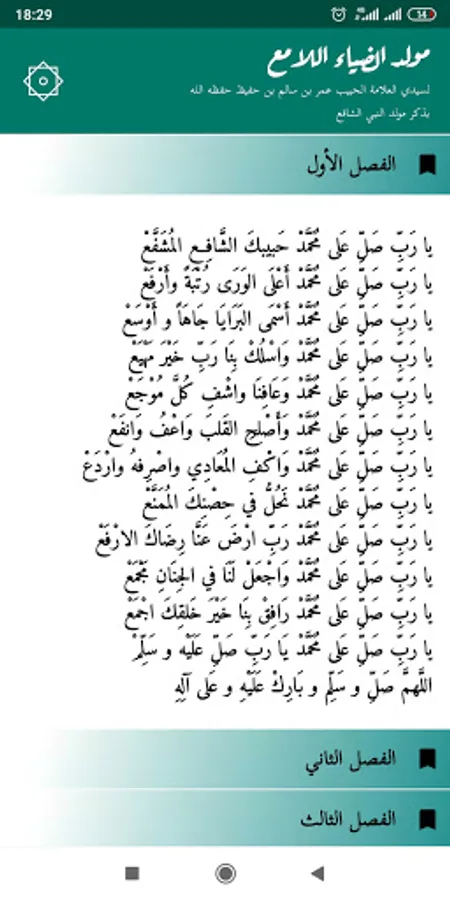 18:29
14
مولد الضياء اللامع
لسيدي العلامة الحبيب عمر بن سالم بن حفيظ حفظه الله
بذكر مولد النبي الشافع
الفصل الأول
يا رَبِّ صَلِّ عَلى مُحَمَّدْ حَبِيبِكَ الشَّافِعِ المُشَفَّعْ
يا رَبِّ صَلِّ عَلى مُحَمَّدْ أَعْلَى الوَرَى رُتْبَةً وأَرْفَعْ
يا رَبِّ صَلِّ عَلى مُحَمَّدْ أَسْمَى البَرَايَا جَاهَاً و أَوْسَعْ
يا رَبِّ صَلِّ عَلى مُحَمَّدْ وَاسْلُكْ بِنَا رَبِّ خَيْرَ مَهْيَعْ
يا رَبِّ صَلِّ عَلى مُحَمَّدْ وَعَافِنَا واشْفِ كُلَّ مُوْجَعْ
يا رَبِّ صَلِّ عَلى مُحَمَّدْ وَأَصْلِحِ القَلبَ وَاعْفُ وَانفَعْ
يا رَبِّ صَلِّ عَلى مُحَمَّدْ وَاكْفِ المُعَادِي واصْرِفهُ وارْدَعْ
يا رَبِّ صَلِّ عَلى مُحَمَّدْ نَحُلُّ في حِصْنِكَ المُمَنَّعْ
يا رَبِّ صَلِّ عَلى مُحَمَّدْ رَبِّ ارْضَ عَنَّا رِضَاكَ الارْفَعْ
يا رَبِّ صَلِّ عَلى مُحَمَّدْ وَاجْعَلْ لَنَا في الجِنَانِ مَجْمَعْ
يا رَبِّ صَلِّ عَلى مُحَمَّدْ رَافِقْ بِنَا خَيْرَ خَلقِكَ اجْمَعْ
يا رَبِّ صَلِّ عَلى مُحَمَّدْ يَا رَبِّ صَلِّ عَلَيْهِ و سَلِّمْ
اللهمَّ صَلِّ و سَلِّم و بَارِكْ عَلَيْهِ و عَلى آلِهِ
الفصل الثاني
الفصل الثالث